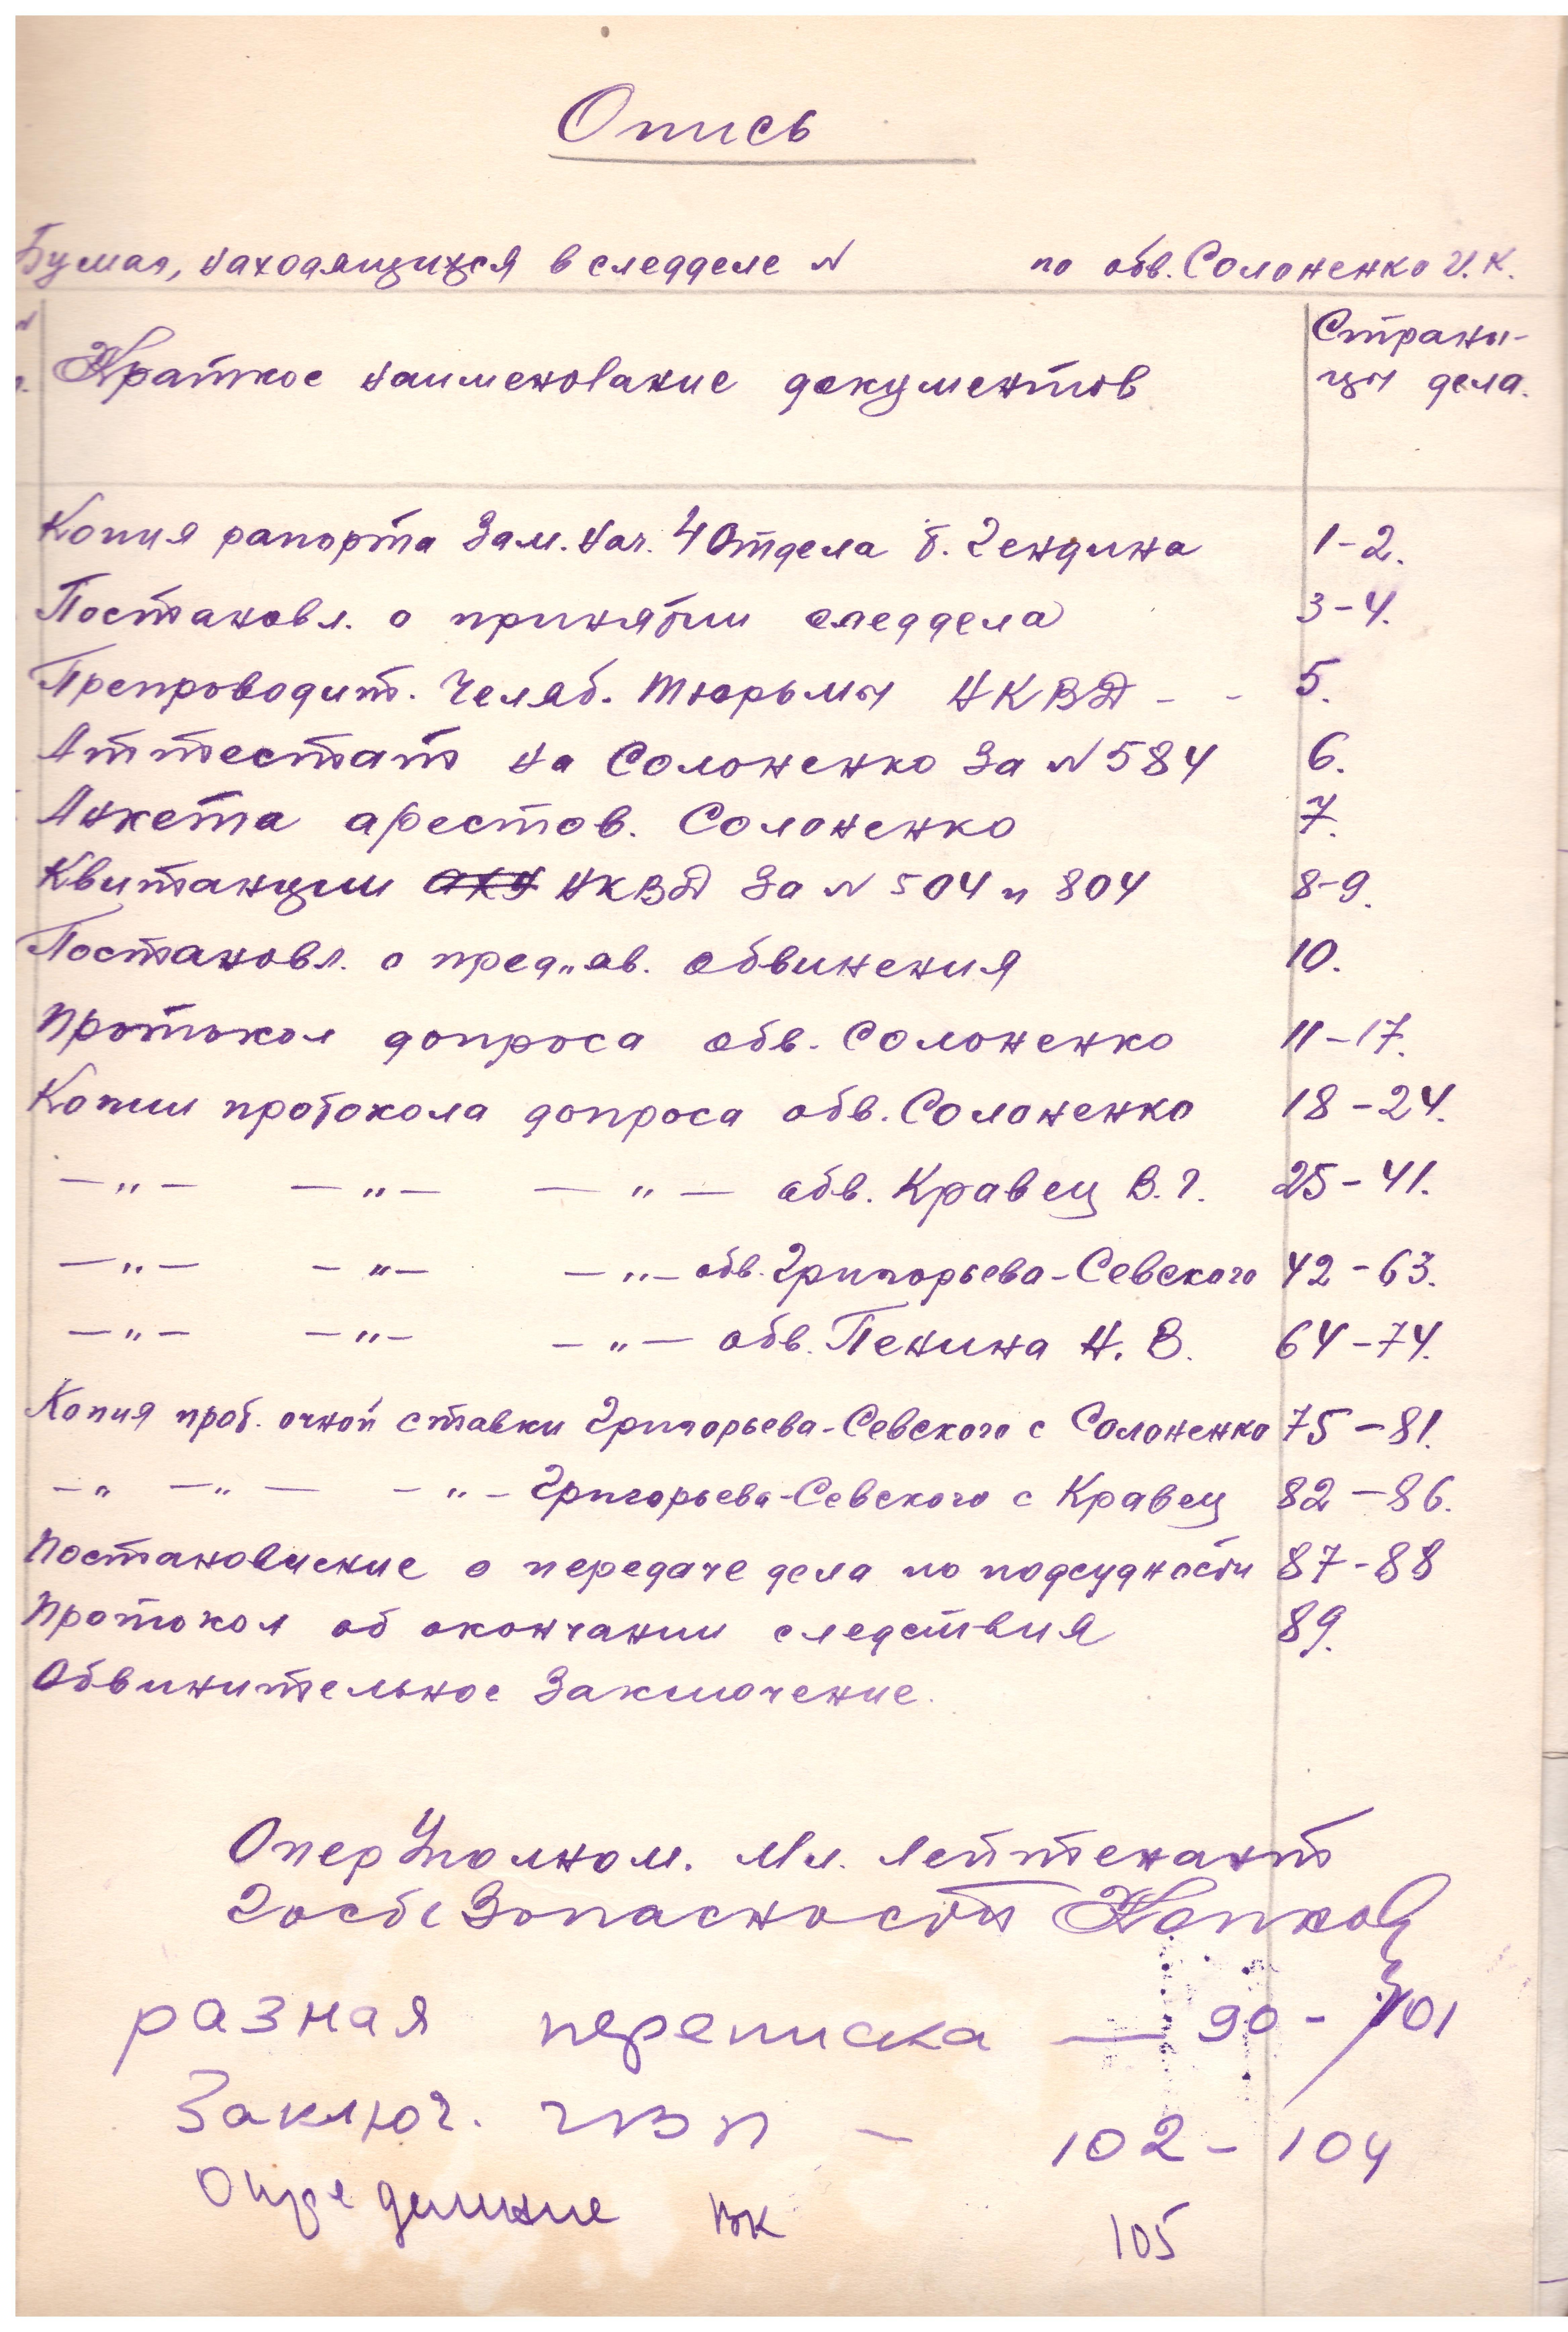 Опись
Бумаг, находящихся вследделе N по обв. Солоненко И.К.
Краткое наименование документов
Страни-
цы дела.
Копия рапорта Зам. Нач. 4 Отдела б. Гендина 1-2.
Постановл. о принятии следдела 3-4.
Препроводит. Челяб. тюрьмы НКВД - - 5.
Аттестат на Солоненко за N 584 6.
Анкета арестов. Солоненко 7.
Квитанции НКВД за N 504 и 804 8-9.
Постановл. о пред"яв. обвинения 10.
Протокол допроса обв. Солоненко 11-17.
Копии протокола допроса обв. Солоненко 18-24.
—"— —"— —"— обв. Кравец В.Г. 25-41.
—"— —"— —"— обв. Григорьева-Севского 42-63.
—"— —"— —"— обв. Пенина Н.В. 64-74.
Копия прот. очной ставки Григорьева-Севского с Солоненко 75-81.
—" —"— —"— Григорьева-Севского с Кравец 82-86.
Постановление о передаче дела по подсудности 87-88
Протокол об окончании следствия 89.
Обвинительное Заключение.
ОперУполном. Мл. Лейтенант
Госбезопасности
разная переписка — 90-101
Заключ. ГВП — 102-104
Определение ВК 105